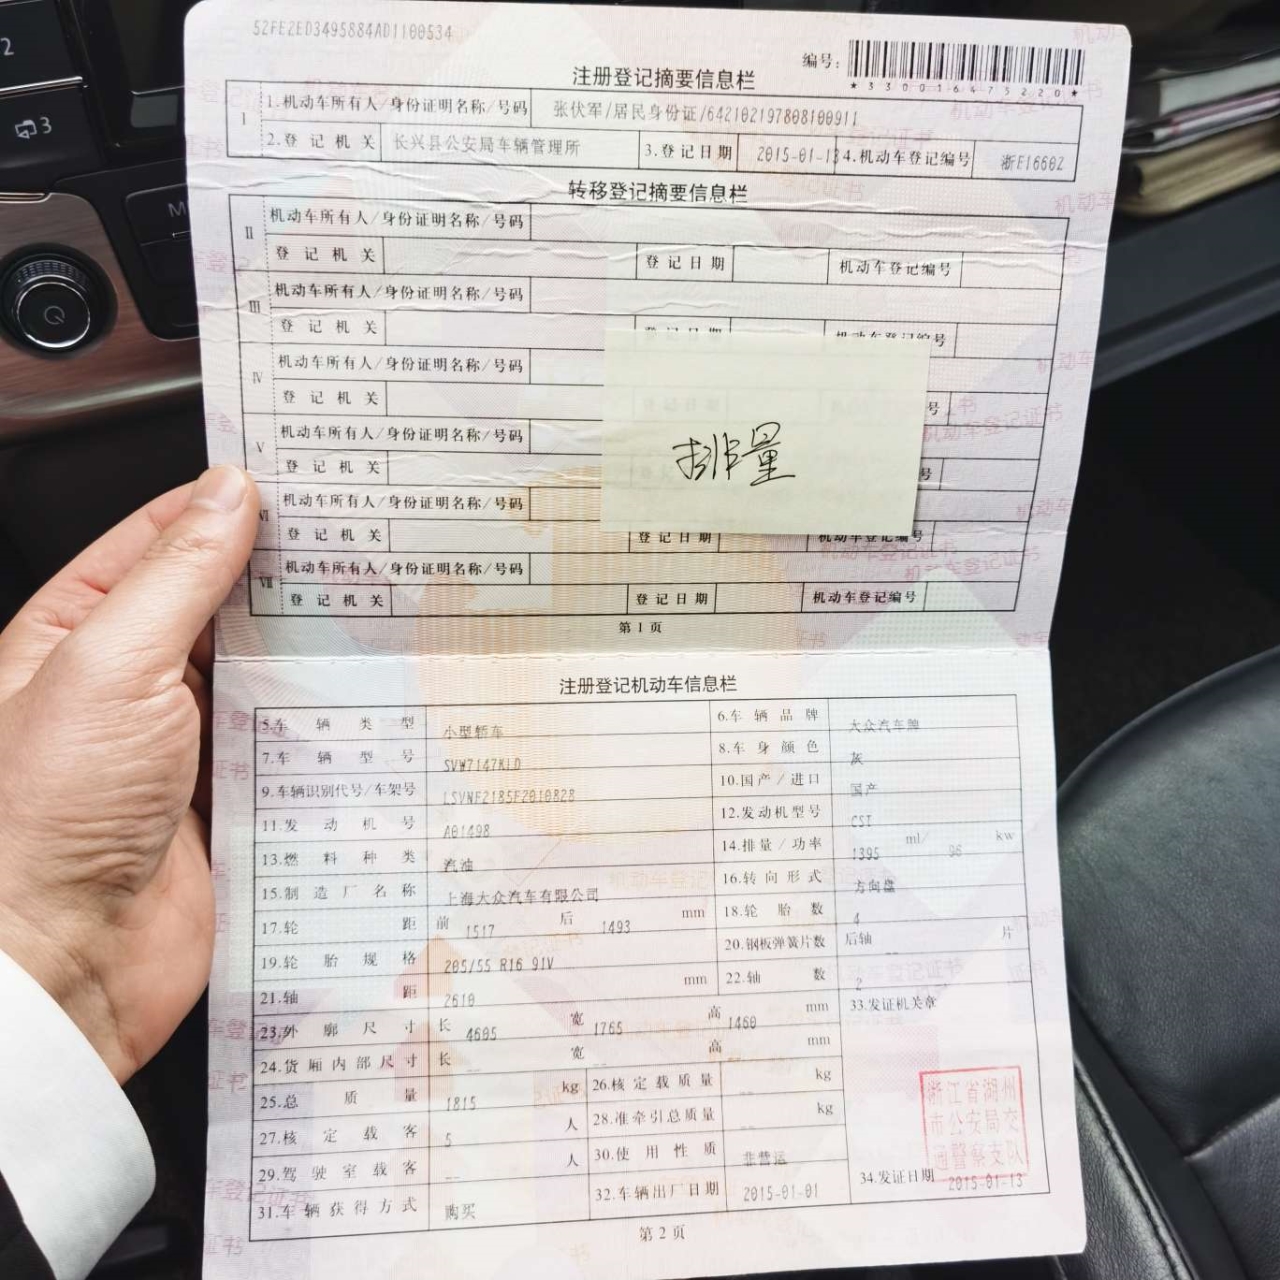 52FE2ED3495884AD1100534
编号:
*330016475220*
注册登记摘要信息栏
I
1.机动车所有人/身份证明名称/号码 张伏军/居民身份证/642102197808100911
2.登记机关 长兴县公安局车辆管理所 3.登记日期 2015-01-13 4.机动车登记编号 浙E16602
转移登记摘要信息栏
II 机动车所有人/身份证明名称/号码
登记机关 登记日期 机动车登记编号
III 机动车所有人/身份证明名称/号码
登记机关 登记日期 机动车登记编号
IV 机动车所有人/身份证明名称/号码
登记机关 号
V 机动车所有人/身份证明名称/号码
登记机关 号
排量
VI 机动车所有人/身份证明名称/号码
登记机关 登记日期 机动车登记编号
VII 机动车所有人/身份证明名称/号码
登记机关 登记日期 机动车登记编号
第1页
注册登记机动车信息栏
5.车辆类型 小型轿车 6.车辆品牌 大众汽车牌
7.车辆型号 SVW7147KLD 8.车身颜色 灰
9.车辆识别代号/车架号 LSVNF2185F2010828 10.国产/进口 国产
11.发动机号 A01498 12.发动机型号 CST
13.燃料种类 汽油 14.排量/功率 1395 ml/ 96 kw
15.制造厂名称 上海大众汽车有限公司 16.转向形式 方向盘
17.轮距 前 1517 后 1493 mm 18.轮胎数 4
19.轮胎规格 205/55 R16 91V 20.钢板弹簧片数 后轴 -- 片
21.轴距 2610 mm 22.轴数 2
23.外廓尺寸 长 4605 宽 1765 高 1460 mm 33.发证机关章
24.货厢内部尺寸 长 -- 宽 -- 高 -- mm
25.总质量 1815 kg 26.核定载质量 -- kg
27.核定载客 5 人 28.准牵引总质量 -- kg
29.驾驶室载客 -- 人 30.使用性质 非营运
31.车辆获得方式 购买 32.车辆出厂日期 2015-01-01 34.发证日期 2015-01-13
浙江省湖州
市公安局交
通警察支队
第2页
2
3